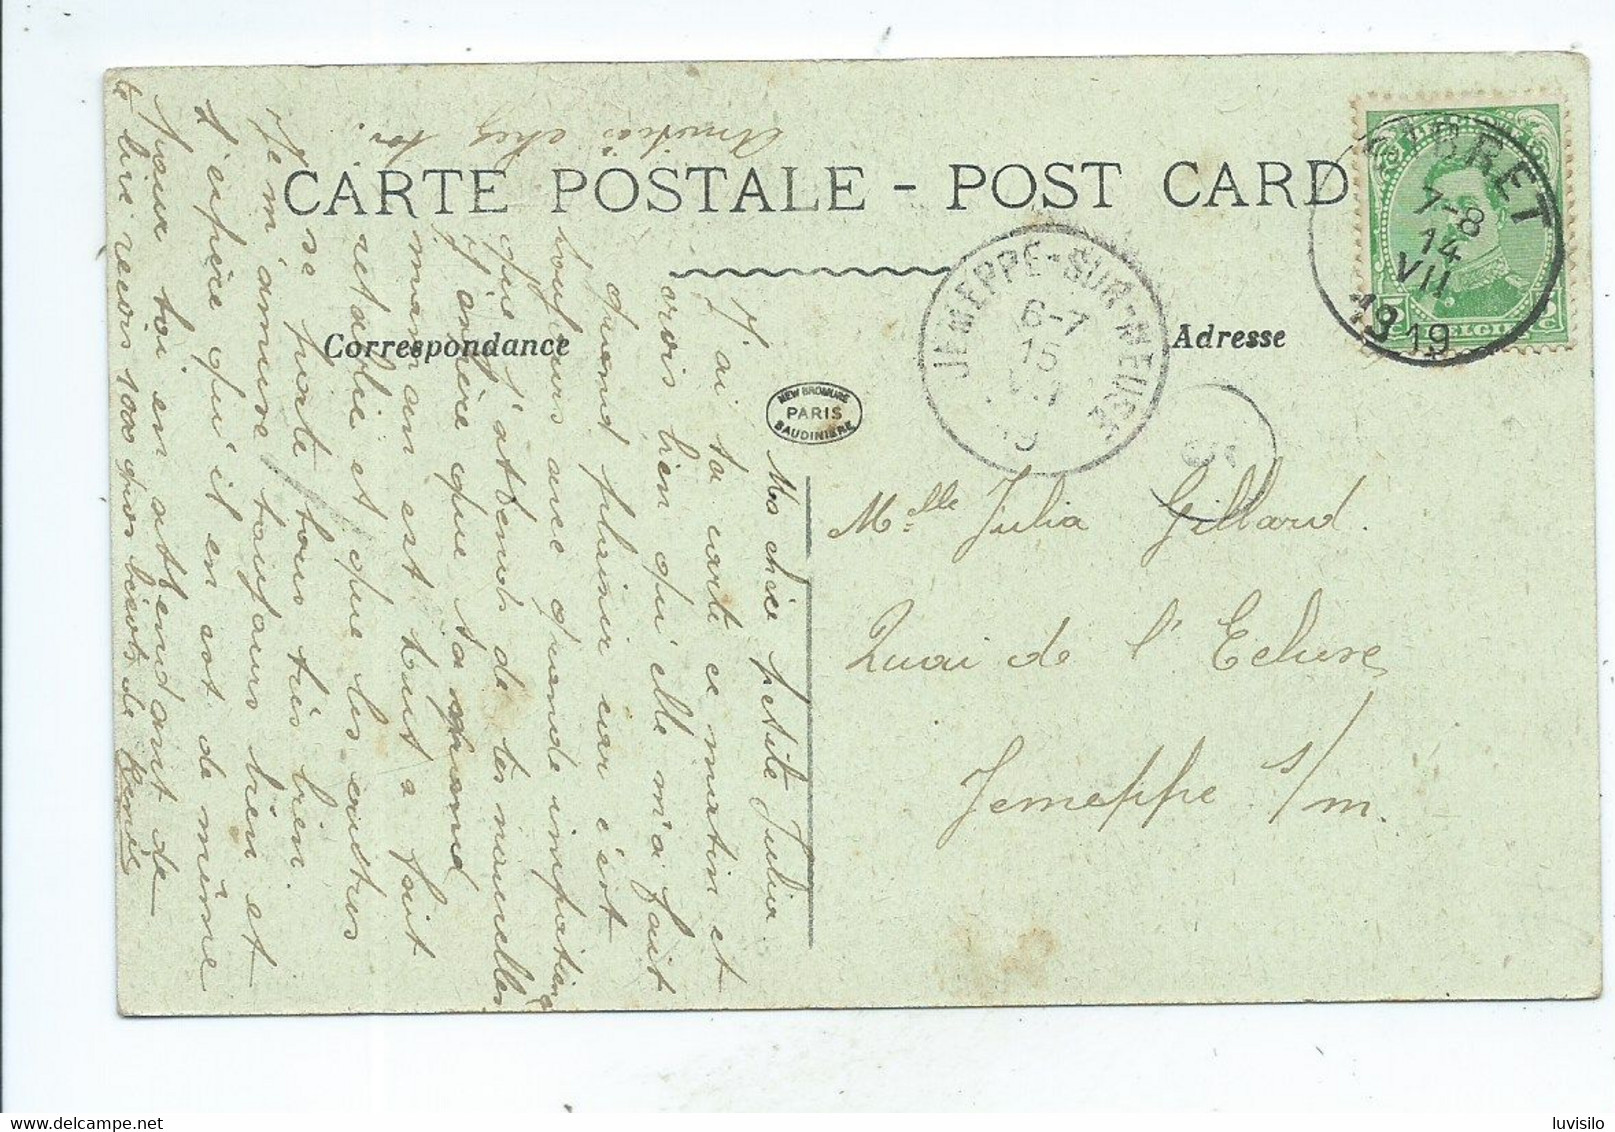 CARTE POSTALE - POST CARD
Correspondance
Adresse
NEW BROMURE
PARIS
BAUDINIERE
JEMEPPE-SUR-MEUSE
6-7
15
7-8
14
VII
1919
BELGIE
Melle Julia Gillard.
Quai de l'Ecluse
Jemeppe s/m.
Ma chère petite Julia
J'ai ta carte ce matin et
crois bien qu'elle m'a fait
grand plaisir car c'est
toujours avec grande impatience
que j'attends de tes nouvelles
J'espère que ta grand
maman est tout a fait
rétablie et que les autres
se porte tous très bien.
Je m'amuse toujours bien et
j'espère qu'il en est de même
pour toi en attendant de
te lire reçois 1000 gros baisers de Renée
Amitiés chez toi.
luvisilo